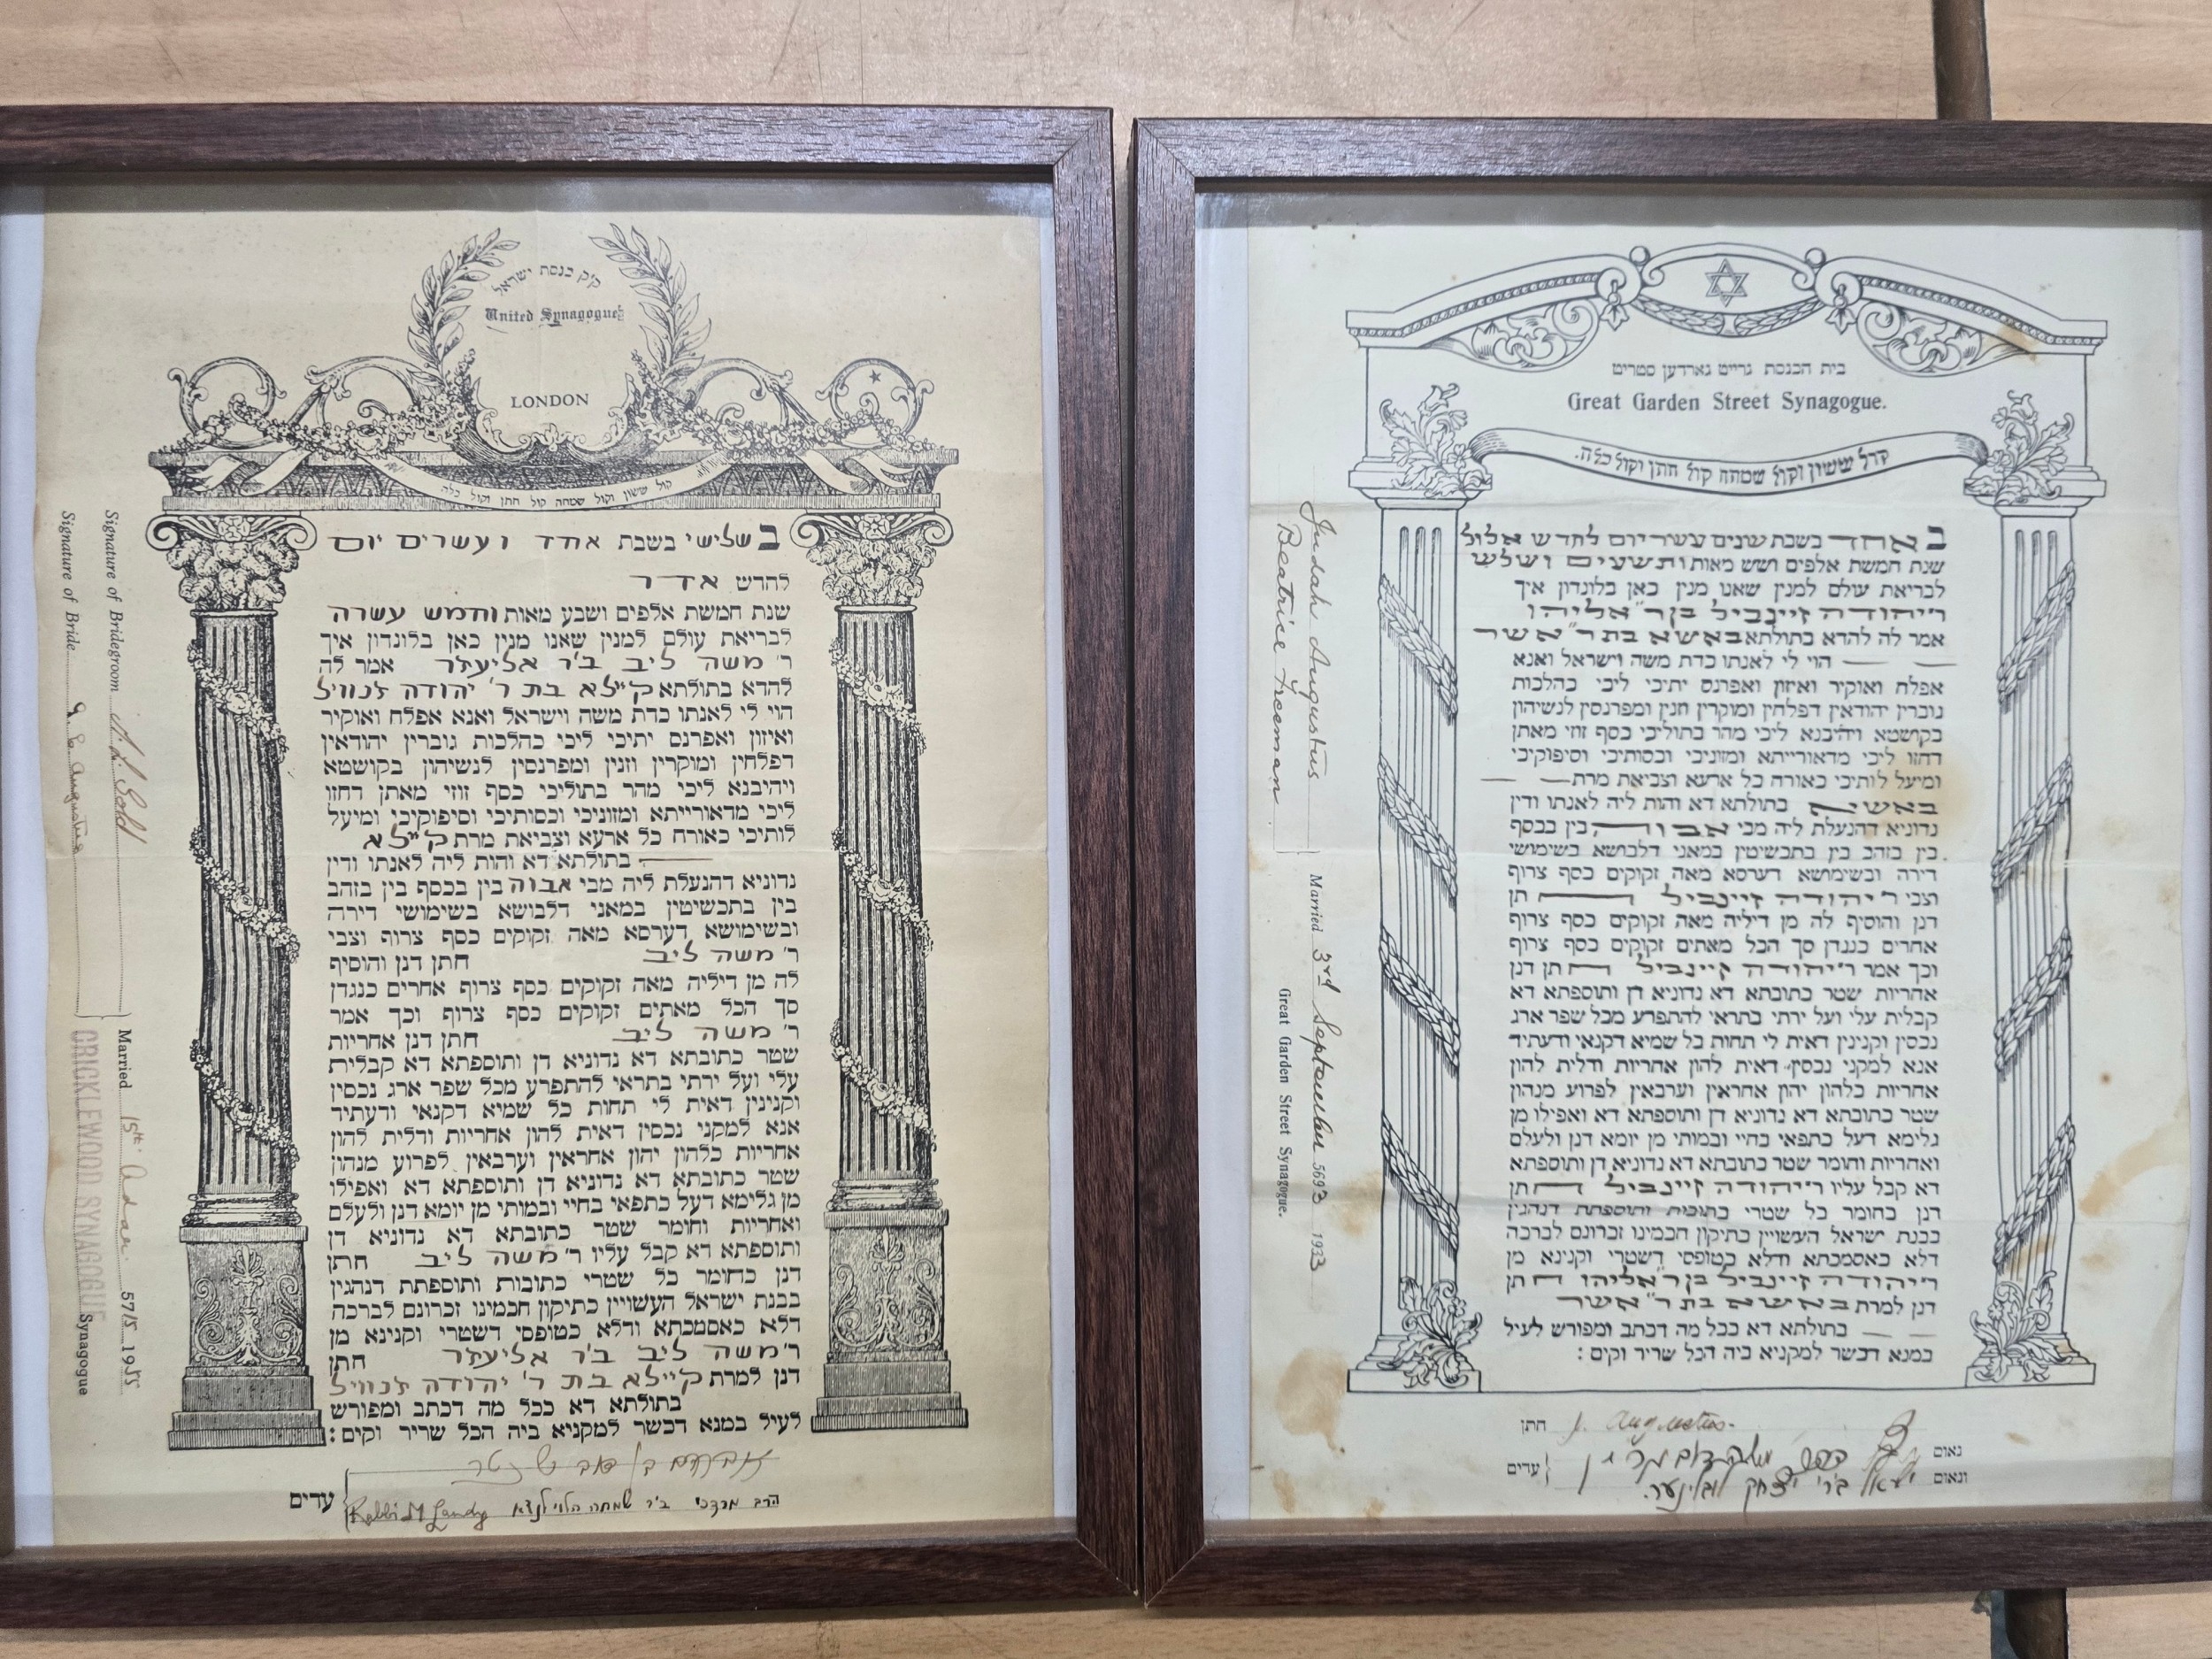 ק״ק כנסת ישראל
United Synagogue
LONDON
קול ששון וקול שמחה קול חתן וקול כלה
בשלישי בשבת אחד ועשרים יום
לחדש אדר
שנת חמשת אלפים ושבע מאות וחמש עשרה
לבריאת עולם למנין שאנו מנין כאן בלונדון איך
ר׳ משה ליב ב״ר אליעזר אמר לה
להדא בתולתא קיילא בת ר׳ יהודה זנוויל
הוי לי לאנתו כדת משה וישראל ואנא אפלח ואוקיר
ואיזון ואפרנס יתיכי ליכי כהלכות גוברין יהודאין
דפלחין ומוקרין וזנין ומפרנסין לנשיהון בקושטא
ויהיבנא ליכי מהר בתוליכי כסף זוזי מאתן דחזו
ליכי מדאורייתא ומזוניכי וכסותיכי וסיפוקיכי ומיעל
לותיכי כאורח כל ארעא וצביאת מרת קיילא
בתולתא דא והות ליה לאנתו ודין
נדוניא דהנעלת ליה מבי אבוה בין בכסף בין בזהב
בין בתכשיטין במאני דלבושא בשימושי דירה
ובשימושא דערסא מאה זקוקים כסף צרוף וצבי
ר׳ משה ליב חתן דנן והוסיף
לה מן דיליה מאה זקוקים כסף צרוף אחרים כנגדן
סך הכל מאתים זקוקים כסף צרוף וכך אמר
ר׳ משה ליב חתן דנן אחריות
שטר כתובתא דא נדוניא דן ותוספתא דא קבלית
עלי ועל ירתי בתראי להתפרע מכל שפר ארג נכסין
וקנינין דאית לי תחות כל שמיא דקנאי ודעתיד
אנא למקני נכסין דאית להון אחריות ודלית להון
אחריות כלהון יהון אחראין וערבאין לפרוע מנהון
שטר כתובתא דא נדוניא דן ותוספתא דא ואפילו
מן גלימא דעל כתפאי בחיי ובמותי מן יומא דנן ולעלם
ואחריות וחומר שטר כתובתא דא נדוניא דן
ותוספתא דא קבל עליו ר׳ משה ליב חתן
דנן כחומר כל שטרי כתובות ותוספתת דנהגין
בבנת ישראל העשויין כתיקון חכמינו זכרונם לברכה
דלא כאסמכתא ודלא כטופסי דשטרי וקנינא מן
ר׳ משה ליב ב״ר אליעזר חתן
דנן למרת קיילא בת ר׳ יהודה זנוויל
בתולתא דא ככל מה דכתב ומפורש
לעיל במנא דכשר למקניא ביה הכל שריר וקים:
עדים
הרב מרדכי ב״ר שמחה הלוי לנדא Rabbi M Landy
Signature of Bridegroom M. L. Gold
Signature of Bride Augustus
Married 15th Adar 5715 1955
CRICKLEWOOD SYNAGOGUE Synagogue
בית הכנסת גרייט גארדען סטריט
Great Garden Street Synagogue.
קול ששון וקול שמחה קול חתן וקול כלה.
באחד בשבת שנים עשר יום לחדש אלול
שנת חמשת אלפים ושש מאות ותשעים ושלש
לבריאת עולם למנין שאנו מנין כאן בלונדון איך
ר׳ יהודה זיינביל בן ר״ אליהו
אמר לה להדא בתולתא באשא בת ר״ אשר
הוי לי לאנתו כדת משה וישראל ואנא
אפלח ואוקיר ואיזון ואפרנס יתיכי ליכי כהלכות
גוברין יהודאין דפלחין ומוקרין וזנין ומפרנסין לנשיהון
בקושטא ויהיבנא ליכי מהר בתוליכי כסף זוזי מאתן
דחזו ליכי מדאורייתא ומזוניכי וכסותיכי וסיפוקיכי
ומיעל לותיכי כאורח כל ארעא וצביאת מרת
באשא בתולתא דא והות ליה לאנתו ודין
נדוניא דהנעלת ליה מבי אבוה בין בכסף
בין בזהב בין בתכשיטין במאני דלבושא בשימושי
דירה ובשימושא דערסא מאה זקוקים כסף צרוף
וצבי ר׳ יהודה זיינביל חתן
דנן והוסיף לה מן דיליה מאה זקוקים כסף צרוף
אחרים כנגדן סך הכל מאתים זקוקים כסף צרוף
וכך אמר ר׳ יהודה זיינביל חתן דנן
אחריות שטר כתובתא דא נדוניא דן ותוספתא דא
קבלית עלי ועל ירתי בתראי להתפרע מכל שפר ארג
נכסין וקנינין דאית לי תחות כל שמיא דקנאי ודעתיד
אנא למקני נכסין דאית להון אחריות ודלית להון
אחריות כלהון יהון אחראין וערבאין לפרוע מנהון
שטר כתובתא דא נדוניא דן ותוספתא דא ואפילו מן
גלימא דעל כתפאי בחיי ובמותי מן יומא דנן ולעלם
ואחריות וחומר שטר כתובתא דא נדוניא דן ותוספתא
דא קבל עליו ר׳ יהודה זיינביל חתן
דנן כחומר כל שטרי כתובות ותוספתת דנהגין
בבנת ישראל העשויין כתיקון חכמינו זכרונם לברכה
דלא כאסמכתא ודלא כטופסי דשטרי וקנינא מן
ר׳ יהודה זיינביל בן ר׳ אליהו חתן
דנן למרת באשא בת ר״ אשר
בתולתא דא ככל מה דכתב ומפורש לעיל
במנא דכשר למקניא ביה הכל שריר וקים:
J. Augustus. חתן
נאום
ונאום ישראל ב״ר יצחק עדים
Judah Augustus
Beatrice Freeman
Married 3rd September 5693 1933
Great Garden Street Synagogue.